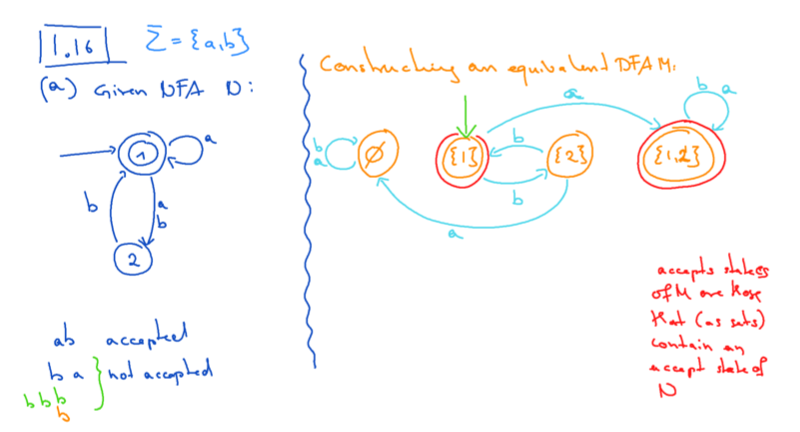 1.16 Σ = {a,b}
(a) Given NFA N:
1
a
b
a
b
2
ab accepted
b a } not accepted
b b b
b
Constructing an equivalent DFA M:
a
b a
b
a
∅
{1}
b
b
{2}
{1,2}
a
accepts states
of M are those
that (as sets)
contain an
accept state of
N